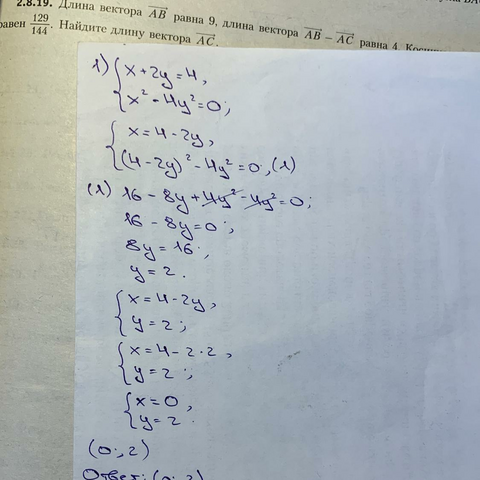 2.8.19. Длина вектора \overrightarrow{AB} равна 9, длина вектора \overrightarrow{AB} − \overrightarrow{AC} равна 4.
равен 129/144. Найдите длину вектора \overrightarrow{AC}.
1) { x + 2y = 4,
x² - 4y² = 0;
{ x = 4 - 2y,
(4 - 2y)² - 4y² = 0, (1)
(1) 16 - 8y + 4y² - 4y² = 0;
16 - 8y = 0;
8y = 16;
y = 2.
{ x = 4 - 2y,
y = 2;
{ x = 4 - 2·2,
y = 2;
{ x = 0,
y = 2.
(0; 2)
Ответ: (0; 2)